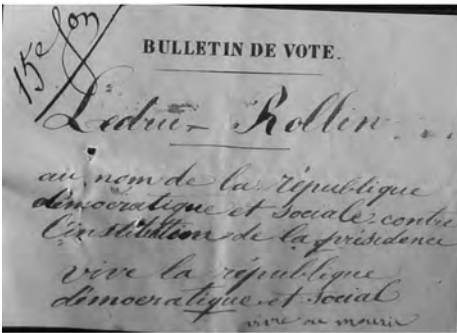 15e
BULLETIN DE VOTE.
Ledru-Rollin
au nom de la république
démocratique et sociale contre
l'institution de la présidence
vive la république
démocratique et social
vivre ou mourir